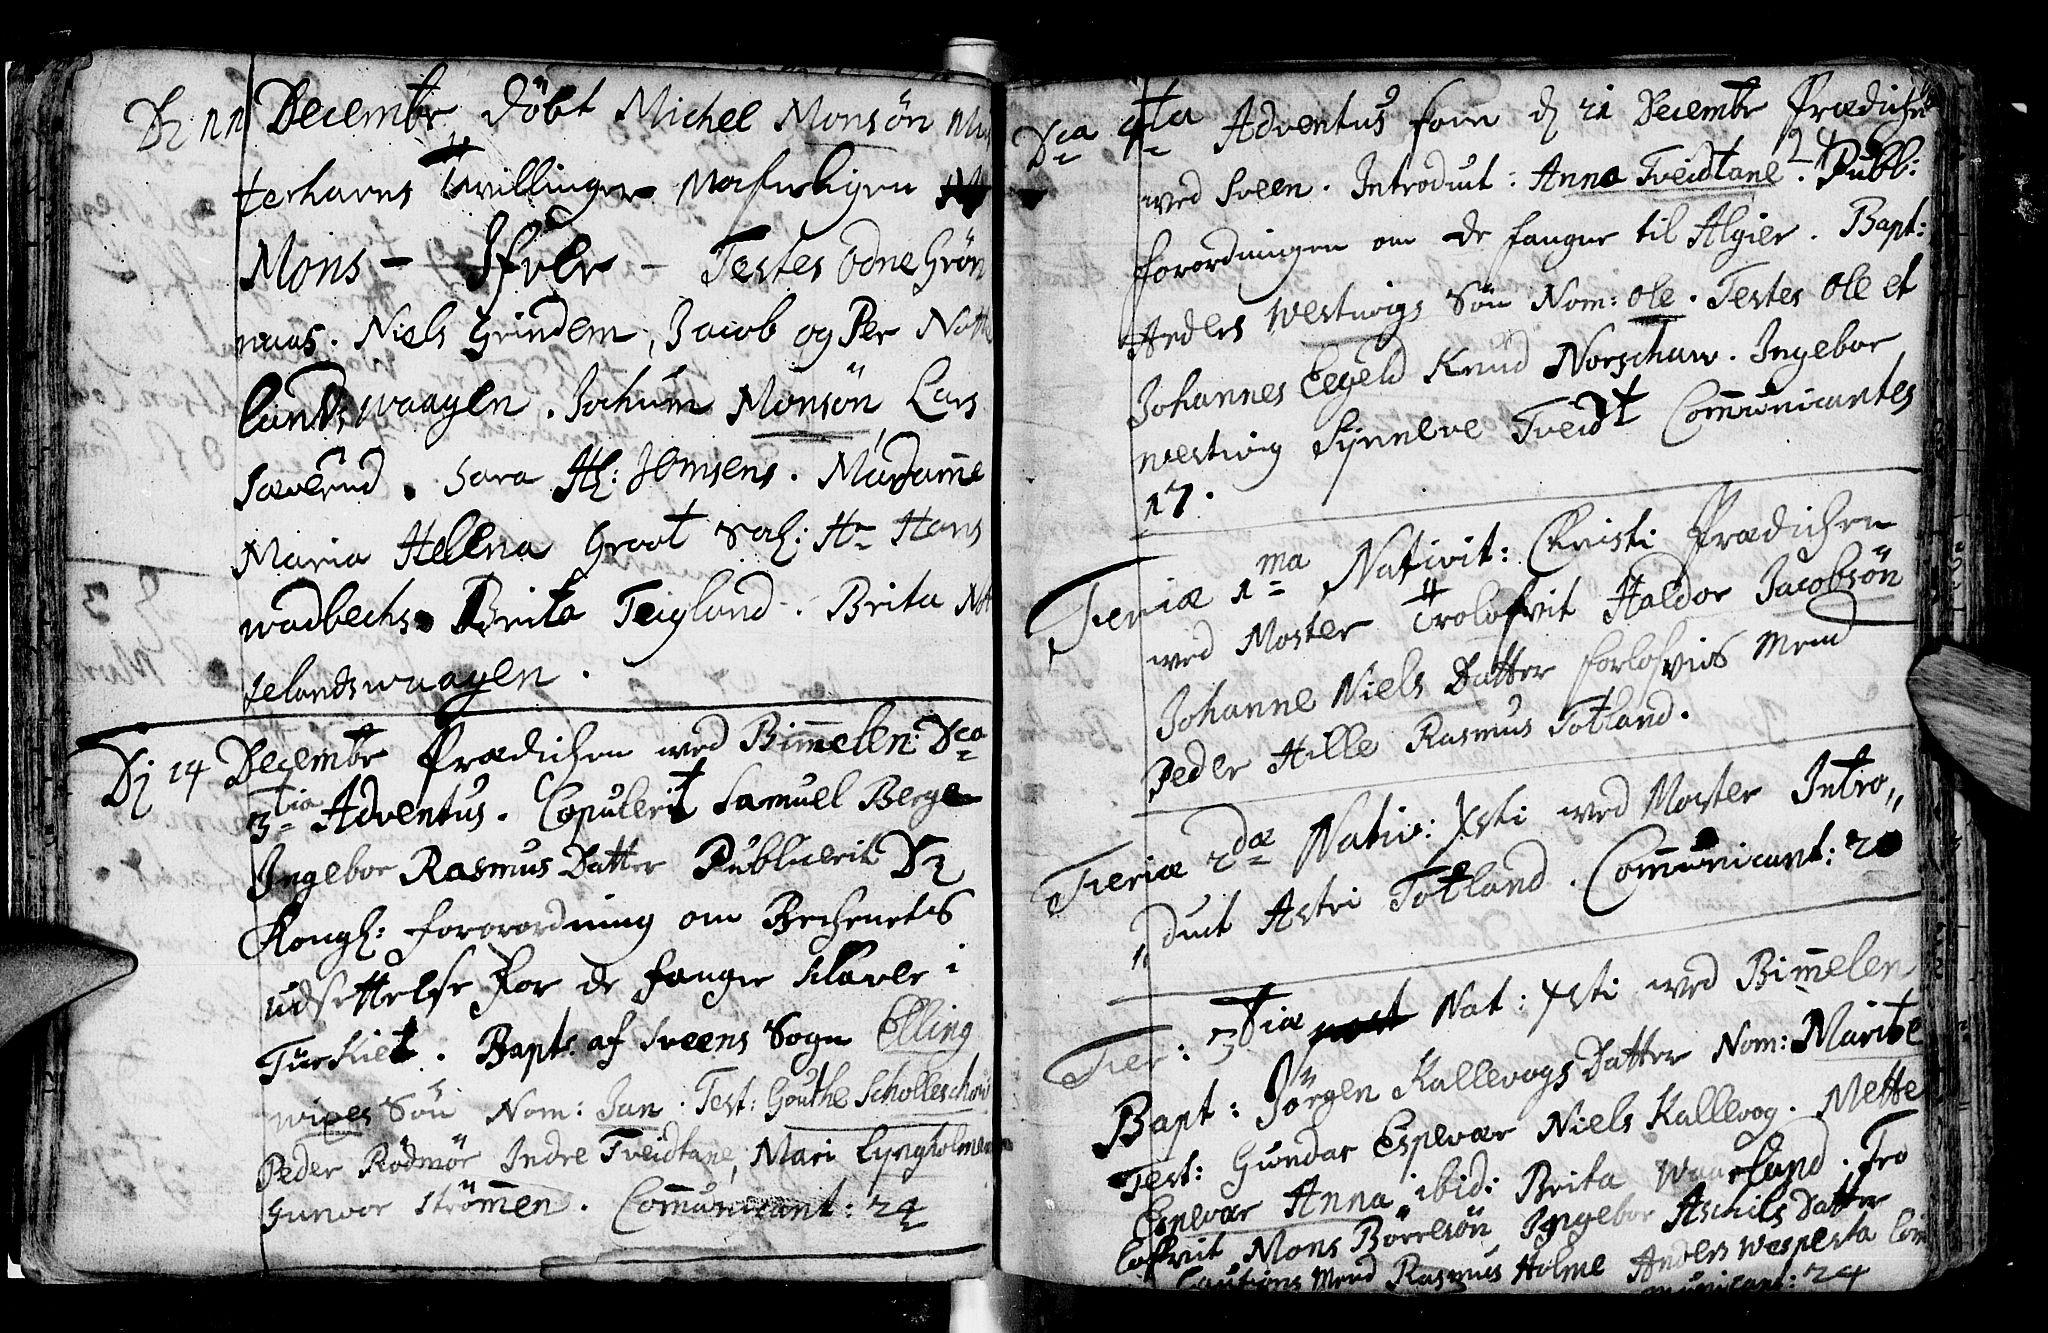 Dj 11 Decembr Döbt Michel Monsön
terhavns Tvillinger
Mons - Ifver - Testes Odne Grön
naas. Niels Grindem, Jacob og Per Notte
lands waagen. Jochum Monsön, Lars
Sæverud. Sara Jensens. Madame
Maria Helena Groot Hr Hans
wadbechs. Brita Teigland. Brita Not
telandswaagen.
Dj 14 Decembr Prædichen wed Bimmelen: Dca
3tia Adventus. Copulerit Samuel Berge
Ingebor Rasmus Datter Publicerit Dj
Kongl: forordning om Bechenets
udsettelse for de fangne Slaver i
Türkiet. Bapt: af Sveens Sogn Elling
wixes Sön Nom: Jan. Test: Gouthe Scholleschou
Peder Rödmör Indre Tveidtane, Mari Lyngholmen
Gunvor Strömmen. Communicant: 24
Dca 4ta Adventus som dj 21 Decembr Prædichen
wed Sveen. Introduct: Anna Tveidtane. 24 Publ:
forordningen om de fangne til Algier. Bapt:
Anders Westwigs Sön Nom: Ole. Testes Ole et
Johannes Eegeld Knud Norschaw. Ingebor
westwig Synneve Tveidt Communicantes
17.
Feriæ 1ma Nativit: Christi Prædichen
wed Moster Trolofvit Haldor Jacobsön
Johanne Niels Datter forlofvis Mend
Peder Hille Rasmus Totland.
Feriæ 2dæ Nativ: Xsti wed Moster Intro,,
duct Astri Totland. Communicant: 20
Fer: 3tiæ Nat: Xsti wed Bimmelen
Bapt: Jörgen Kallevogs Datter Nom: Maritte
Test: Gundar Espevær Niels Kallevog. Mette
Espevær Anna ibid: Brita Waarland. Tro
lofvit Mons Börresön Ingebor Aschils Datter
Cautions Mend Rasmus Holme Anders Wespesta Com
municant: 24